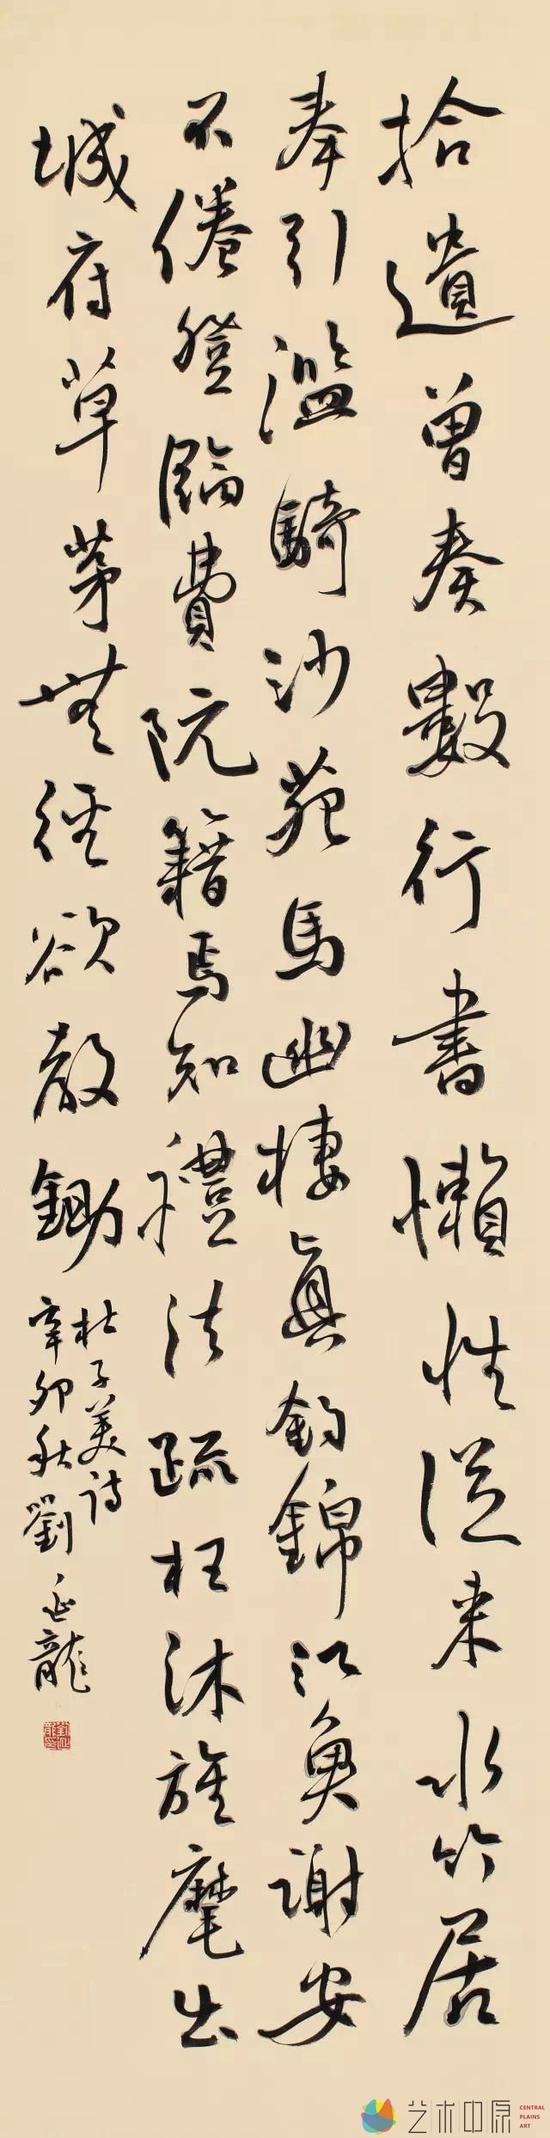 拾遺曾奏數行書懶性從来水竹居
奉引濫騎沙苑馬幽棲真釣錦江魚謝安
不倦登臨費阮籍焉知禮法疏枉沐旌麾出
城府草茅無徑欲教鋤
杜子美詩
辛卯秋劉延龍
艺术中原
CENTRAL
PLAINS
ART